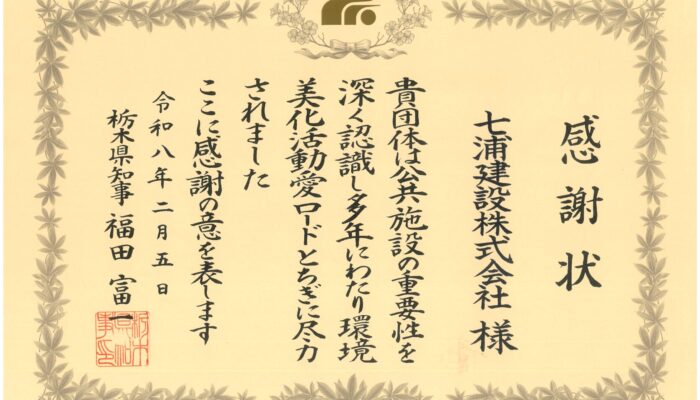 感謝状
七浦建設株式会社 様
貴団体は公共施設の重要性を
深く認識し多年にわたり環境
美化活動愛ロードとちぎに尽力
されました
ここに感謝の意を表します
令和八年二月五日
栃木県知事 福田富一